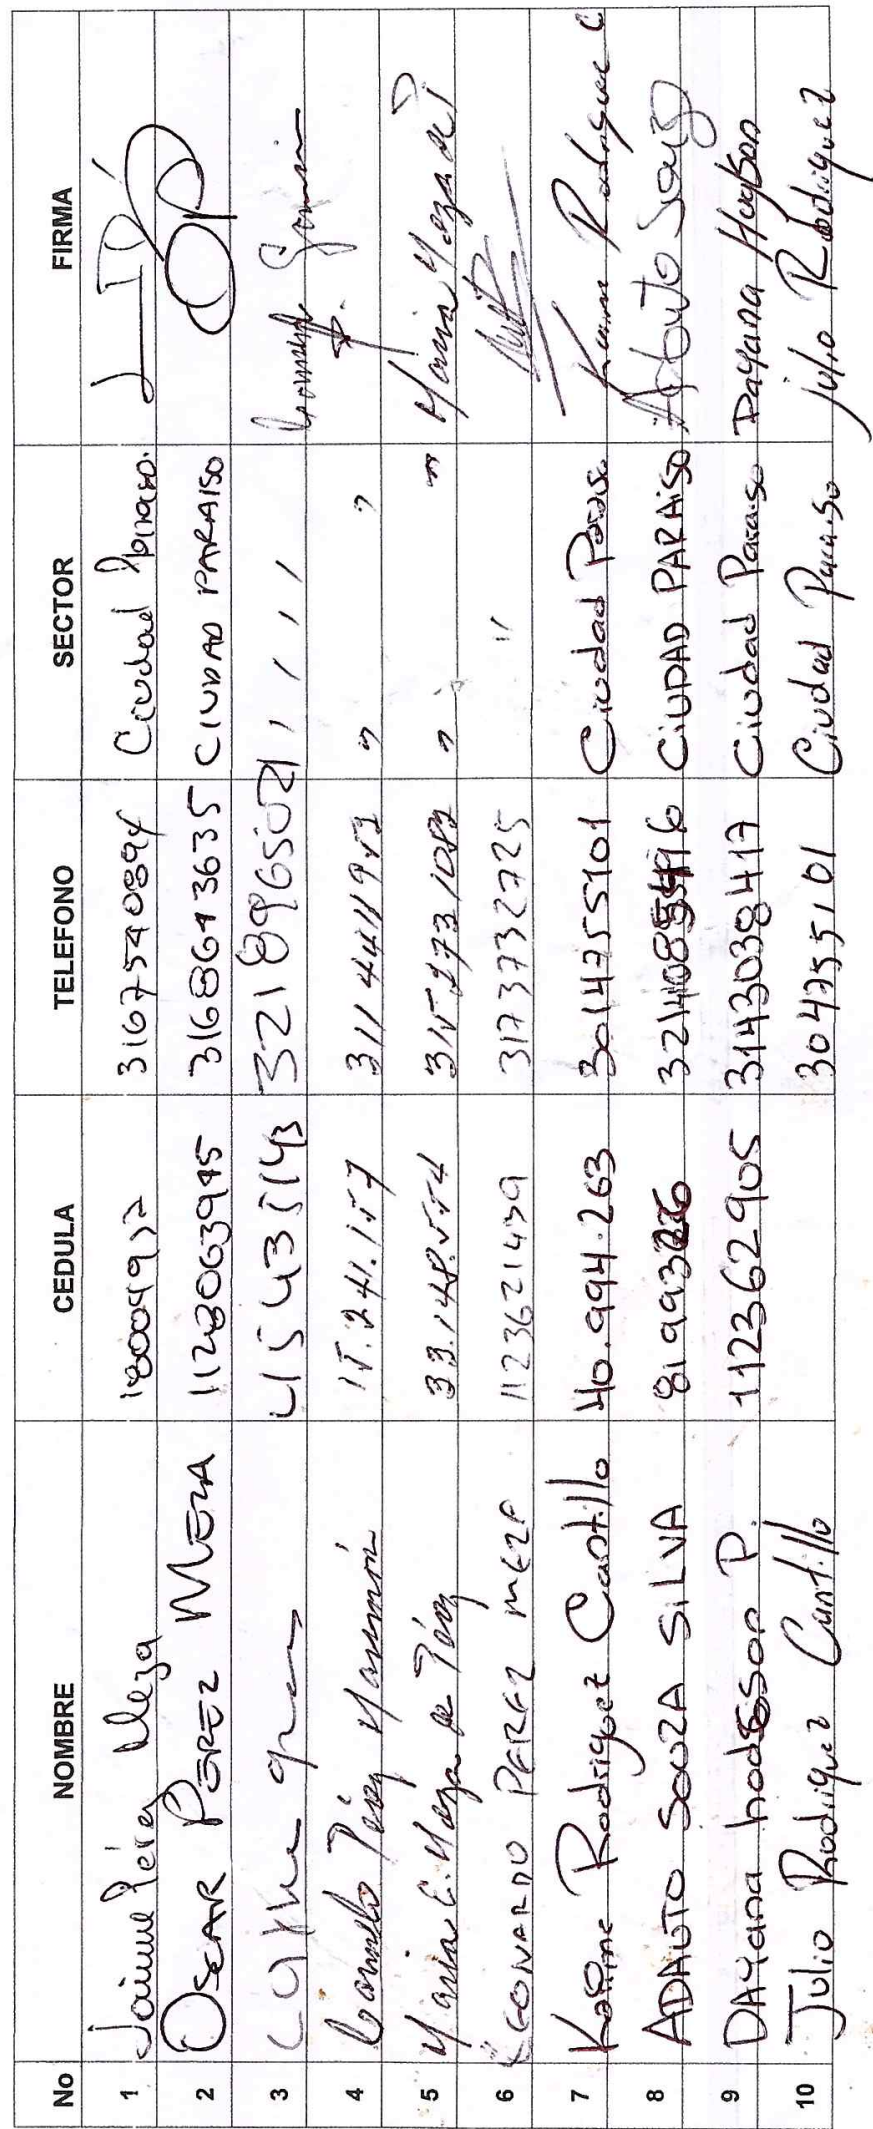 No NOMBRE CEDULA TELEFONO SECTOR FIRMA
1 Jaime Pérez Meza 18004952 3167540894 Ciudad Paraiso.
2 OSCAR PÉREZ MEZA 1128063945 3168643635 CIUDAD PARAISO OP
3 45435143 3218965021 , , , ,
4 Carmelo Pérez 15.241.157 3114411953 " "
5 Maria C. Meza de Pérez 33.148.554 3152731082 " " Maria Meza de P
6 LEONARDO PEREZ MEZA 1123621439 3173732725 "
7 Karine Rodriguez Cantillo 40.994.263 3014755101 Ciudad Paraiso Karin Rodriguez C
8 ADAUTO SOUZA SILVA CIUDAD PARAISO Adauto Souza
9 DAYana hodgson P. 112362905 3143038417 Ciudad Paraiso Dayana Hogdson
10 Julio Rodriguez Cantillo 304755101 Ciudad Paraiso julio Rodriguez